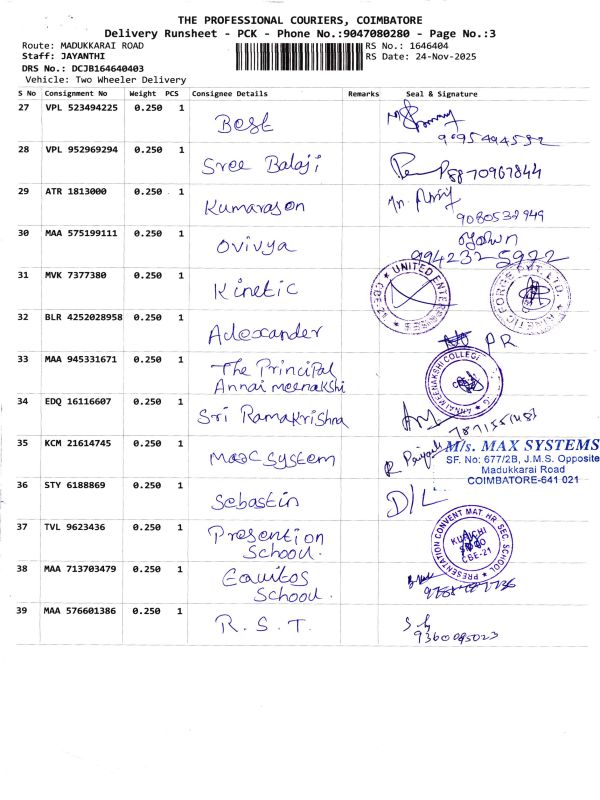 THE PROFESSIONAL COURIERS, COIMBATORE
Delivery Runsheet - PCK - Phone No.:9047080280 - Page No.:3
Route: MADUKKARAI ROAD RS No.: 1646404
Staff: JAYANTHI RS Date: 24-Nov-2025
DRS No.: DCJB164640403
Vehicle: Two Wheeler Delivery
S No Consignment No Weight PCS Consignee Details Remarks Seal & Signature
27 VPL 523494225 0.250 1 Best
28 VPL 952969294 0.250 1 Sree Balaji 8870967844
29 ATR 1813000 0.250 1 Kumarason
9080532949
30 MAA 575199111 0.250 1 Ovivya
994232 5972
31 MVK 7377380 0.250 1 Kinetic UNITED ENTERPRISES
32 BLR 4252028958 0.250 1 Adexander PR
33 MAA 945331671 0.250 1 The Principal
Annai meenakshi ANNAI MEENAKSHI COLLEGE
34 EDQ 16116607 0.250 1 Sri Ramakrishna
35 KCM 21614745 0.250 1 System
M/s. MAX SYSTEMS
SF. No: 677/2B, J.M.S. Opposite
Madukkarai Road
COIMBATORE-641 021
36 STY 6188869 0.250 1 Sebastin D/L
37 TVL 9623436 0.250 1 Presention
School. PRESENTATION CONVENT MAT. HR. SEC. SCHOOL
CBE-21
38 MAA 713703479 0.250 1 Equitos
School.
39 MAA 576601386 0.250 1 R. S. T.
9360095023